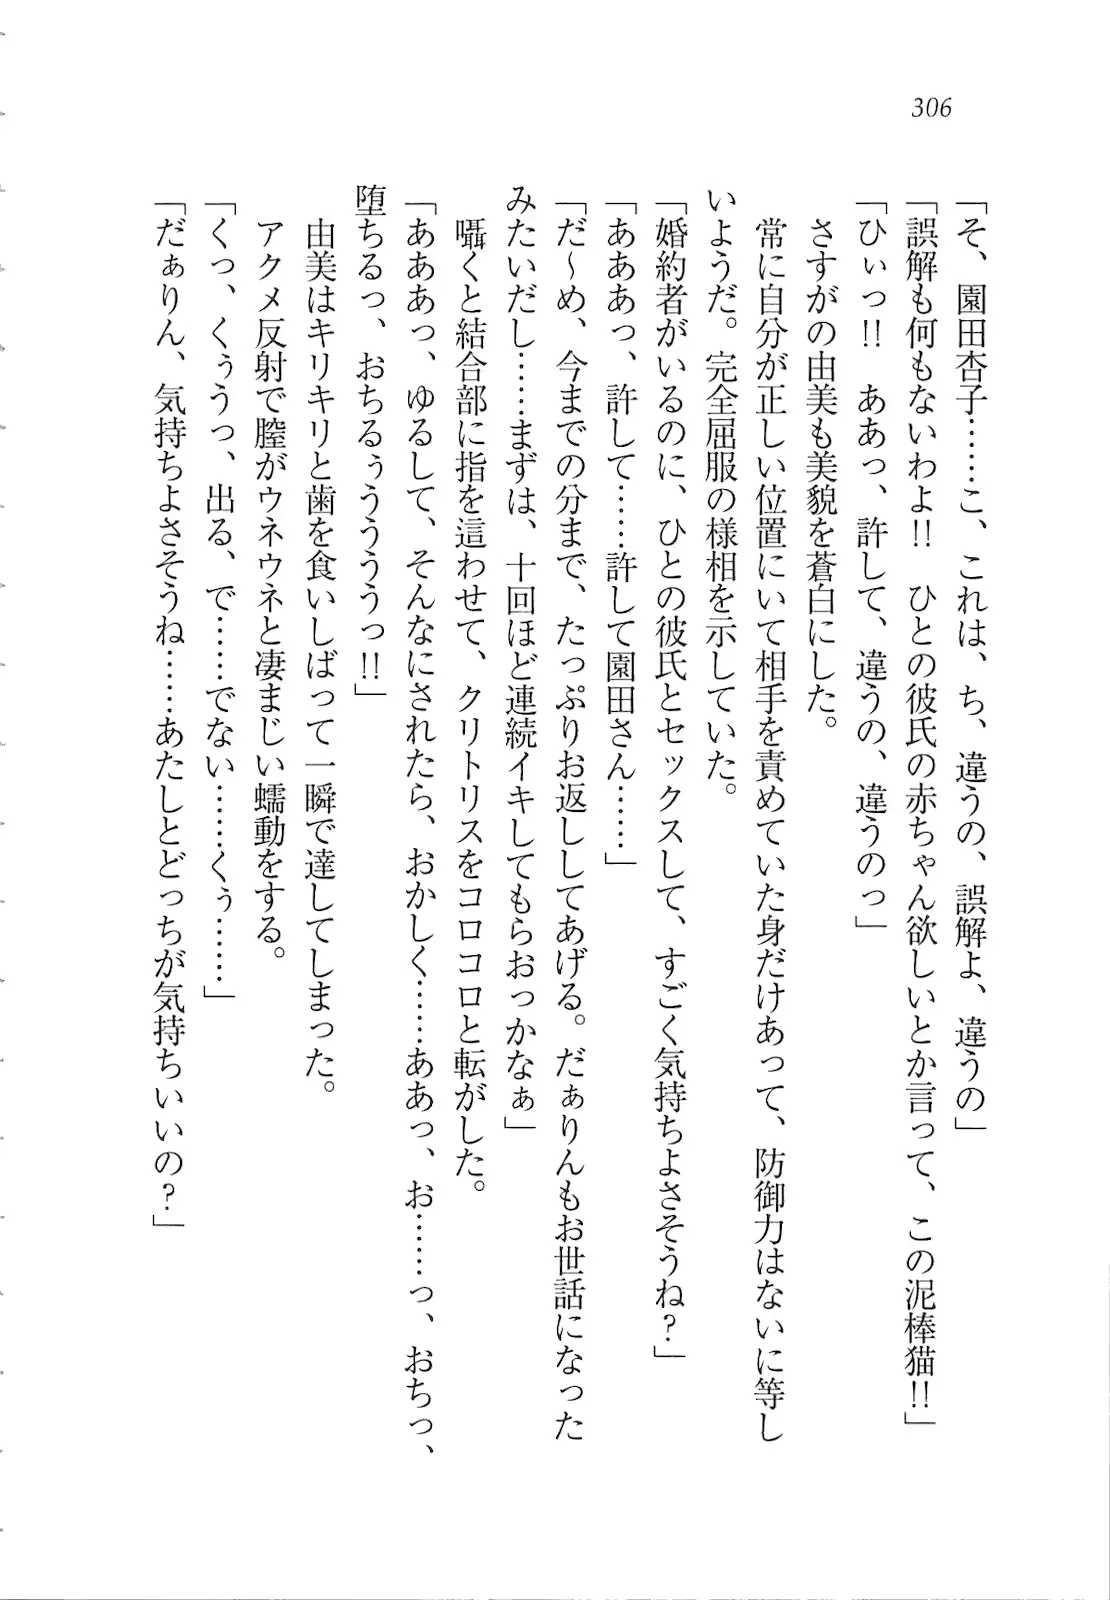 306
「そ、園田杏子……こ、これは、ち、違うの、誤解よ、違うの」
「誤解も何もないわよ!! ひとの彼氏の赤ちゃん欲しいとか言って、この泥棒猫!!」
「ひぃっ!! ああっ、許して、違うの、違うのっ」
さすがの由美も美貌を蒼白にした。
常に自分が正しい位置にいて相手を責めていた身だけあって、防御力はないに等し
いようだ。完全屈服の様相を示していた。
「婚約者がいるのに、ひとの彼氏とセックスして、すごく気持ちよさそうね?」
「あああっ、許して……許して園田さん……」
「だ〜め、今までの分まで、たっぷりお返ししてあげる。だぁりんもお世話になった
みたいだし……まずは、十回ほど連続イキしてもらおっかなぁ」
囁くと結合部に指を這わせて、クリトリスをコロコロと転がした。
「あああっ、ゆるして、そんなにされたら、おかしく……ああっ、お……っ、おちっ、
堕ちるっ、おちるぅうううっ!!」
由美はキリキリと歯を食いしばって一瞬で達してしまった。
アクメ反射で膣がウネウネと凄まじい蠕動をする。
「くっ、くぅうっ、出る、で……でない……くぅ……」
「だぁりん、気持ちよさそうね……あたしとどっちが気持ちいいの?」